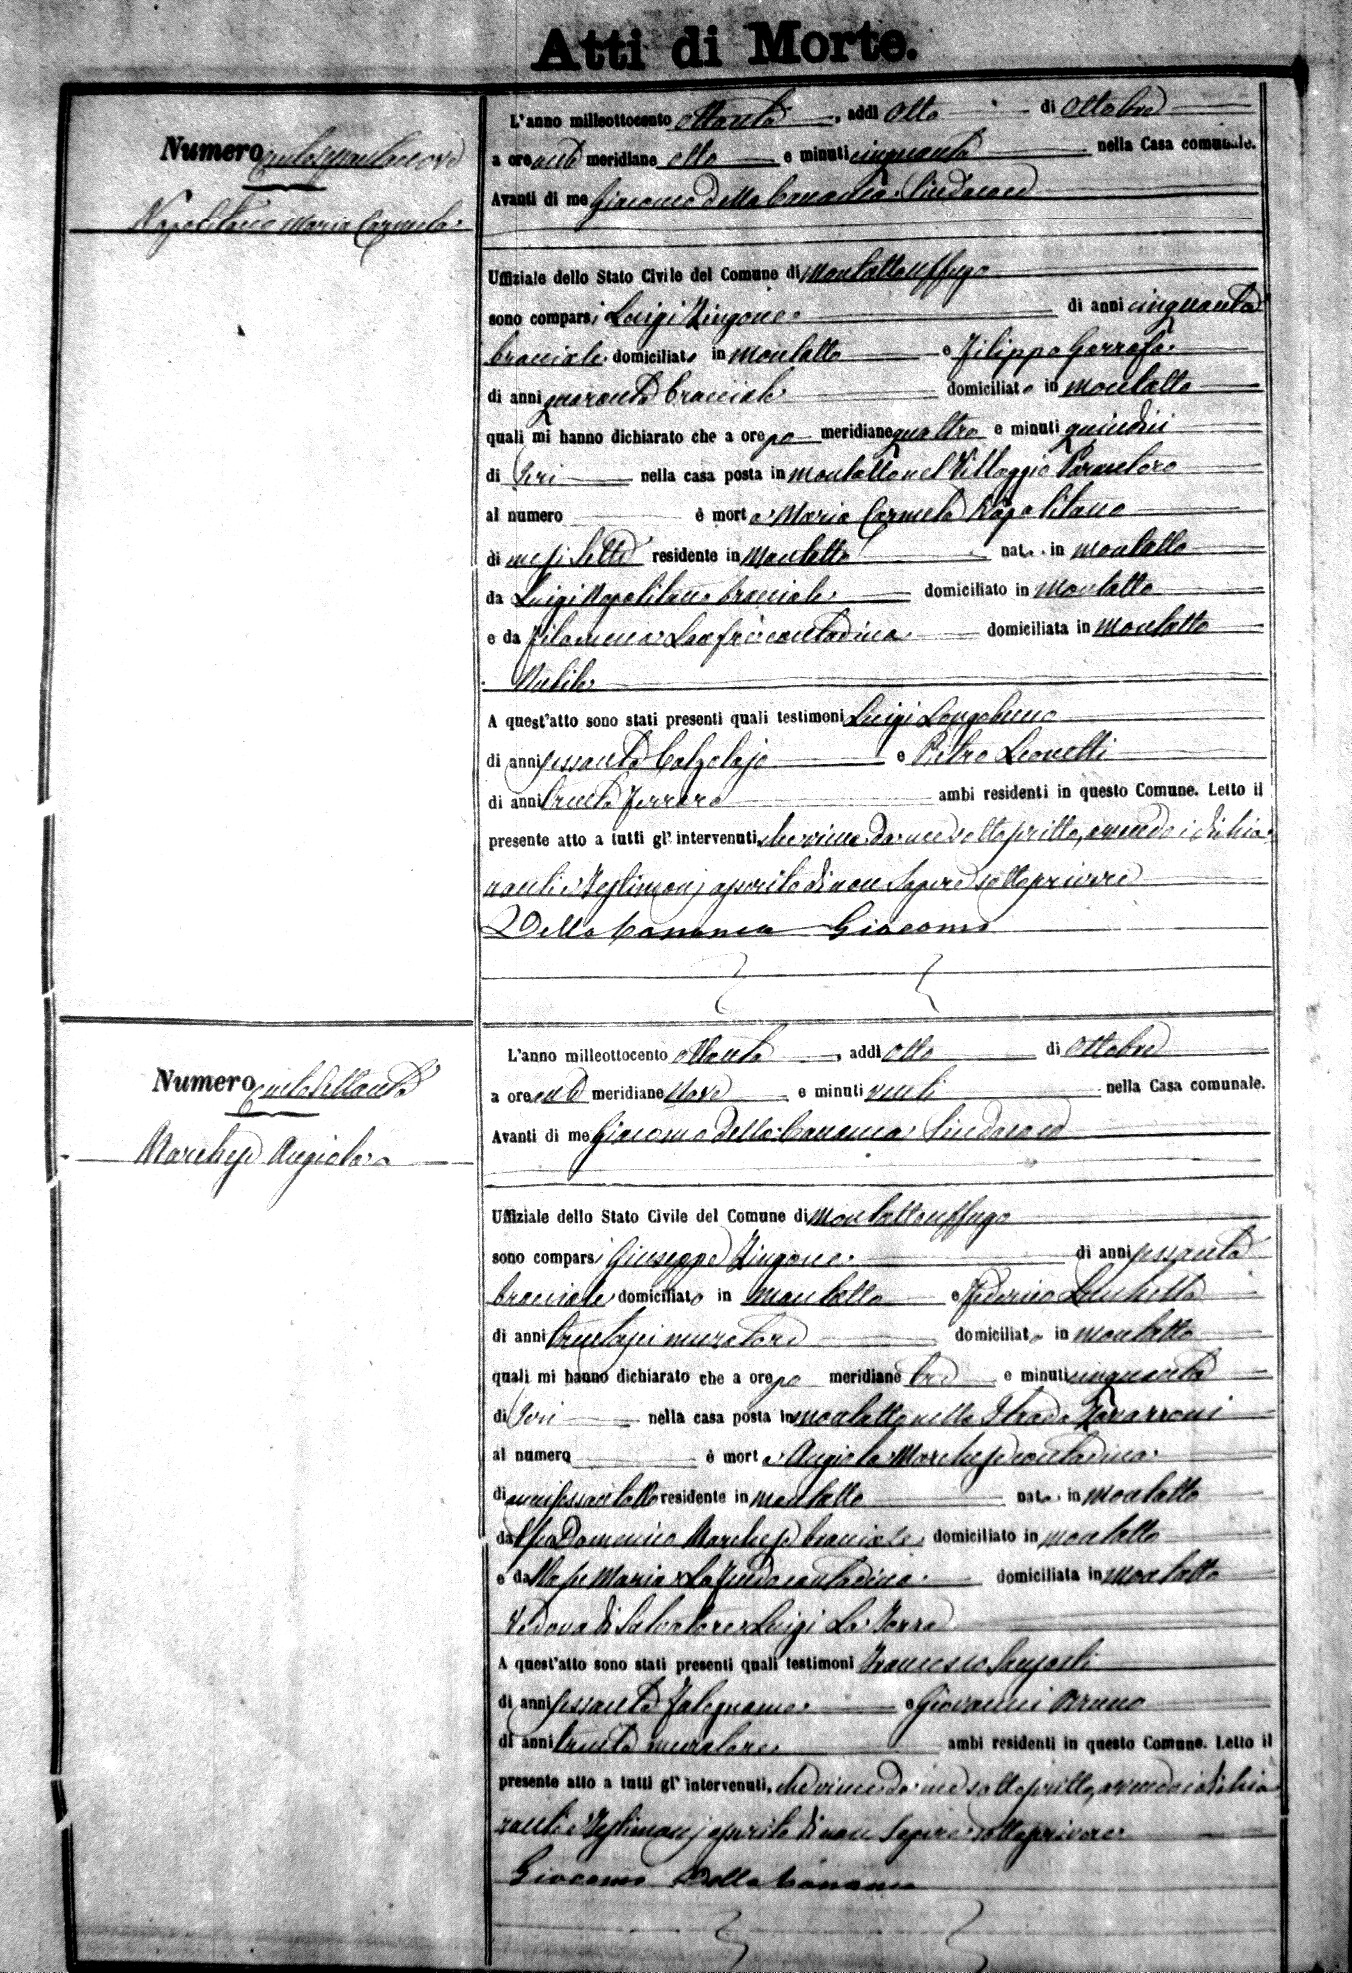 Atti di Morte.
Numero centosessantanove
Napolitano Maria Carmela
L'anno milleottocento ottanta, addì otto di Ottobre
a ore anti meridiane otto e minuti cinquanta nella Casa comunale.
Avanti di me Giacomo della Cananea Sindaco
Uffiziale dello Stato Civile del Comune di Montaltouffugo
sono comparsi Luigi Zingone di anni cinquanta
bracciale domiciliato in Montalto e Filippo Garrafa
di anni quaranta bracciale domiciliato in Montalto
quali mi hanno dichiarato che a ore po meridiane quattro e minuti quindici
di Ieri nella casa posta in Montalto nel Villaggio Parantoro
al numero è morta Maria Carmela Napolitano
di mesi sette residente in Montalto nata in Montalto
da Luigi Napolitano bracciale domiciliato in Montalto
e da Filomena contadina domiciliata in Montalto
Nubile
A quest'atto sono stati presenti quali testimoni Luigi Longobucco
di anni sessanta Calzolajo e Pietro Leonetti
di anni trenta Ferraro ambi residenti in questo Comune. Letto il
presente atto a tutti gl' intervenuti, che viene da me sottoscritto, avendo i dichia
ranti e Testimonj asserito di non sapere sottoscrivere
Della Cananea Giacomo
Numero centosettanta
Marchese Angiola
L'anno milleottocento ottanta, addì otto di Ottobre
a ore anti meridiane nove e minuti venti nella Casa comunale.
Avanti di me Giacomo della Cananea Sindaco
Uffiziale dello Stato Civile del Comune di Montaltouffugo
sono comparsi Giuseppe Zingone di anni sessanta
bracciale domiciliato in Montalto e Federico
di anni trentasei muratore domiciliato in Montalto
quali mi hanno dichiarato che a ore po meridiane tre e minuti cinquanta
di Ieri nella casa posta in Montalto nella Strada Zavarroni
al numero è morta Angiola Marchese contadina
di anni sessantotto residente in Montalto nata in Montalto
da fu Domenico Marchese bracciale domiciliato in Montalto
e da fu Maria contadina domiciliata in Montalto
Vedova di Salvatore Luigi La Torre
A quest'atto sono stati presenti quali testimoni Francesco Sansosti
di anni sessanta falegname e Giovanni Bruno
di anni trenta muratore ambi residenti in questo Comune. Letto il
presente atto a tutti gl' intervenuti, che viene da me sottoscritto, avendo i dichia
ranti e Testimonj asserito di non sapere sottoscrivere
Giacomo Della Cananea